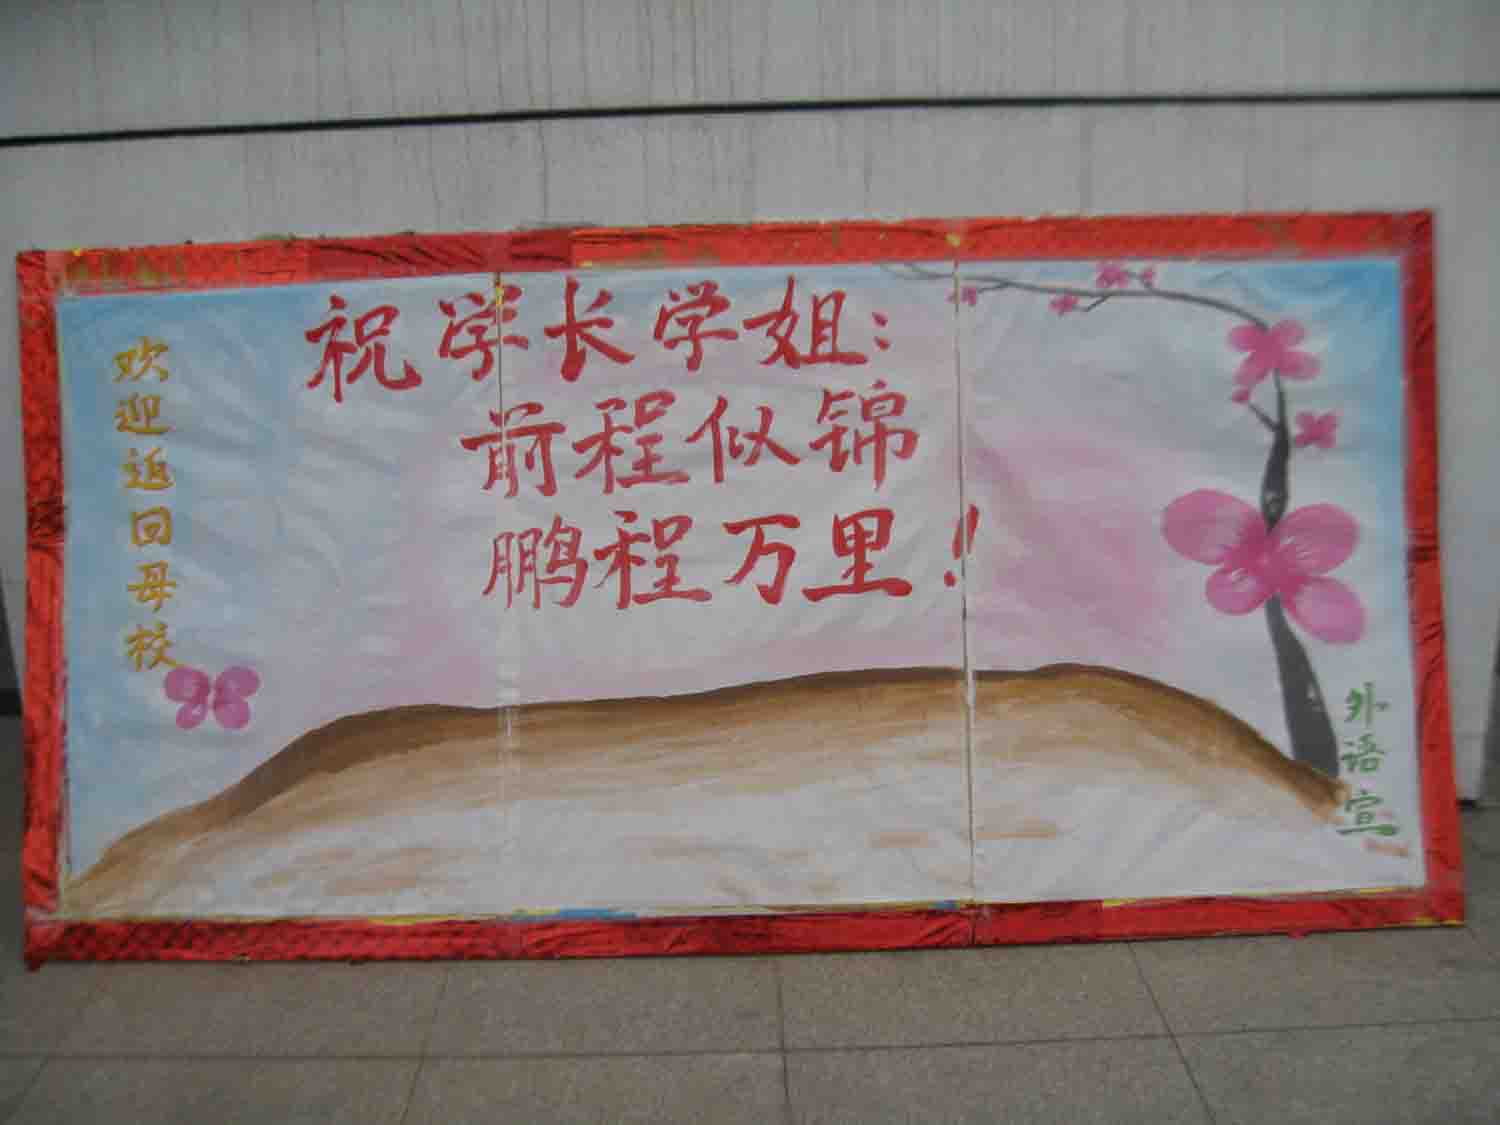 欢迎返回母校
祝学长学姐：
前程似锦
鹏程万里！
外语宣